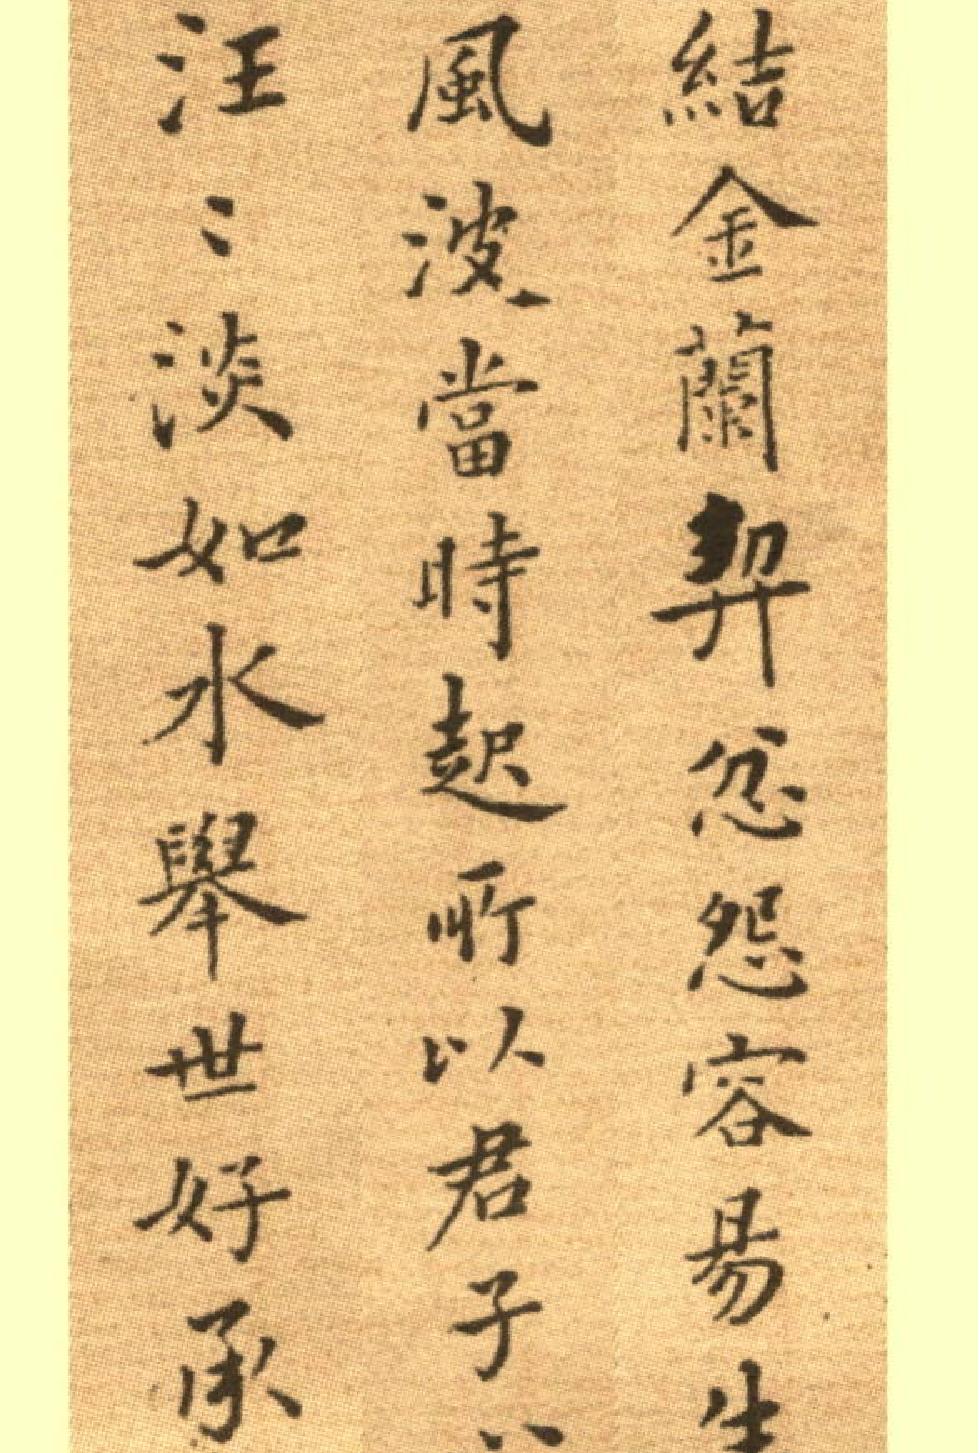 結金蘭契忿怨容易生
風波當時起所以君子
汪〻淡如水舉世好承